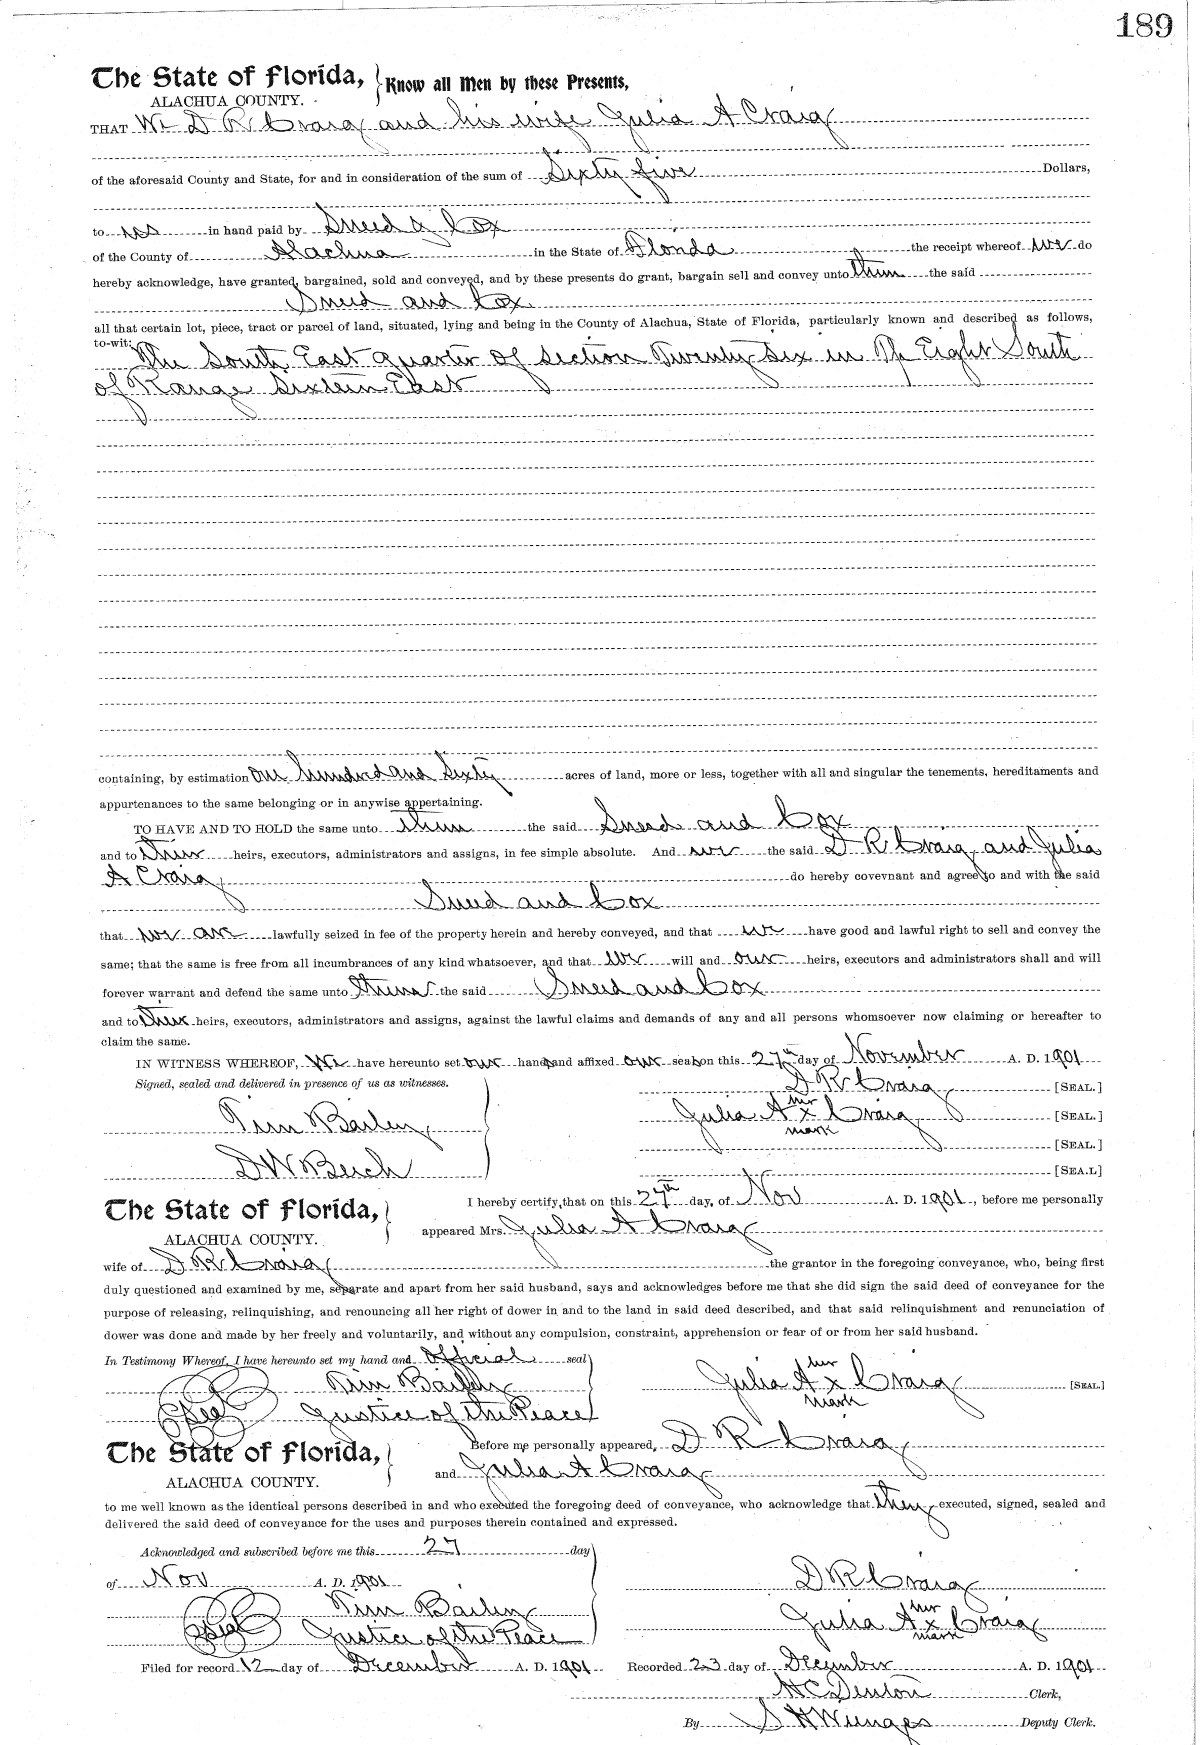 189
The State of Florida, Know all Men by these Presents,
ALACHUA COUNTY.
THAT We D R Craig and his wife Julia A Craig
of the aforesaid County and State, for and in consideration of the sum of Sixty five Dollars,
to us in hand paid by Sneed & Cox
of the County of Alachua in the State of Florida the receipt whereof we do
hereby acknowledge, have granted, bargained, sold and conveyed, and by these presents do grant, bargain sell and convey unto them the said
Sneed and Cox
all that certain lot, piece, tract or parcel of land, situated, lying and being in the County of Alachua, State of Florida, particularly known and described as follows,
to-wit: The South East quarter of Section Twenty Six in Tp Eight South
of Range Sixteen East
containing, by estimation one hundred and Sixty acres of land, more or less, together with all and singular the tenements, hereditaments and
appurtenances to the same belonging or in anywise appertaining.
TO HAVE AND TO HOLD the same unto them the said Sneed and Cox
and to their heirs, executors, administrators and assigns, in fee simple absolute. And we the said D R Craig and Julia
A Craig do hereby covevnant and agree to and with the said
Sneed and Cox
that we are lawfully seized in fee of the property herein and hereby conveyed, and that we have good and lawful right to sell and convey the
same; that the same is free from all incumbrances of any kind whatsoever, and that we will and our heirs, executors and administrators shall and will
forever warrant and defend the same unto them the said Sneed and Cox
and to their heirs, executors, administrators and assigns, against the lawful claims and demands of any and all persons whomsoever now claiming or hereafter to
claim the same.
IN WITNESS WHEREOF, We have hereunto set our hands and affixed our seals on this 27th day of November A. D. 1901
Signed, sealed and delivered in presence of us as witnesses.
D R Craig [SEAL.]
her
Julia A x Craig [SEAL.]
mark
Tim Bailey
[SEAL.]
D W Beech
[SEA.L]
The State of Florida,
ALACHUA COUNTY.
I hereby certify, that on this 27th day, of Nov A. D. 1901, before me personally
appeared Mrs. Julia A Craig
wife of D R Craig the grantor in the foregoing conveyance, who, being first
duly questioned and examined by me, separate and apart from her said husband, says and acknowledges before me that she did sign the said deed of conveyance for the
purpose of releasing, relinquishing, and renouncing all her right of dower in and to the land in said deed described, and that said relinquishment and renunciation of
dower was done and made by her freely and voluntarily, and without any compulsion, constraint, apprehension or fear of or from her said husband.
In Testimony Whereof, I have hereunto set my hand and official seal
her
Tim Bailey Julia A x Craig [SEAL.]
mark
Seal Justice of the Peace
The State of Florida,
ALACHUA COUNTY.
Before me personally appeared, D R Craig
and Julia A Craig
to me well known as the identical persons described in and who executed the foregoing deed of conveyance, who acknowledge that they executed, signed, sealed and
delivered the said deed of conveyance for the uses and purposes therein contained and expressed.
Acknowledged and subscribed before me this 27 day
of Nov A. D. 1901
D R Craig
Tim Bailey
her
Julia A x Craig
mark
Seal Justice of the Peace
Filed for record 12 day of December A. D. 1901 Recorded 23 day of December A. D. 1901
H C Denton Clerk,
By S H Deputy Clerk.